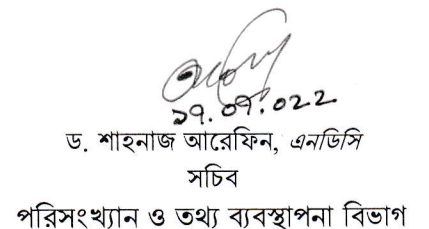 ১৭.০৭.০২২
ড. শাহনাজ আরেফিন, এনডিসি
সচিব
পরিসংখ্যান ও তথ্য ব্যবস্থাপনা বিভাগ